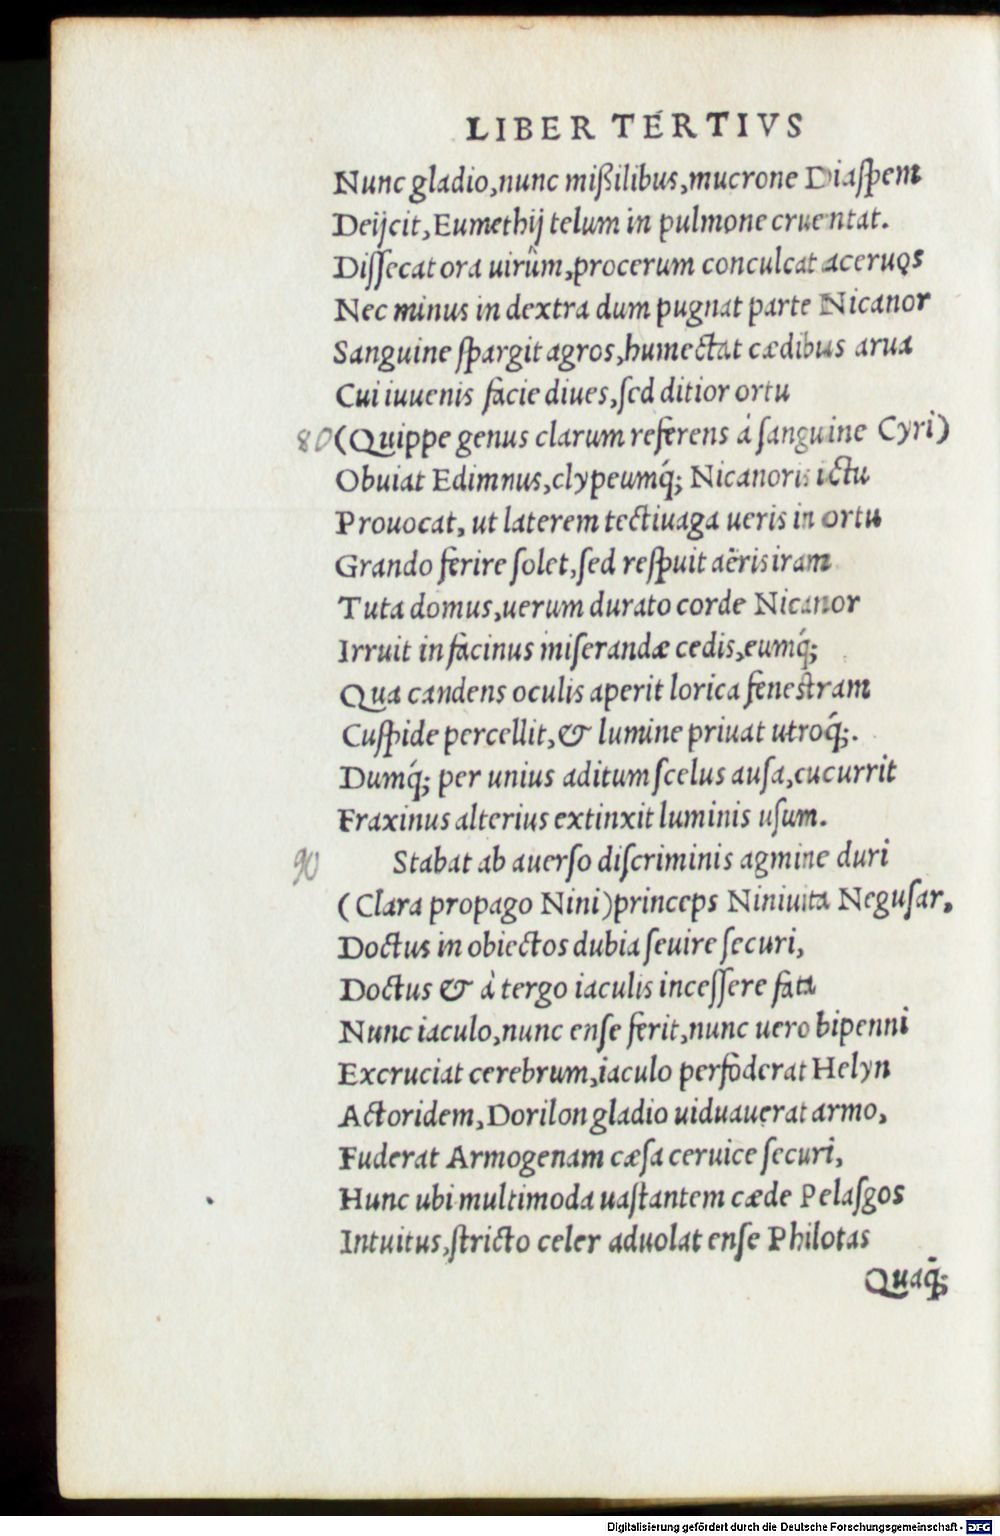 LIBER TERTIVS
Nunc gladio, nunc mißilibus, mucrone Diaſpem
Deijcit, Eumethij telum in pulmone cruentat.
Diſſecat ora uirûm, procerum conculcat aceruos
Nec minus in dextra dum pugnat parte Nicanor
Sanguine ſpargit agros, humectat cædibus arua
Cui iuuenis facie diues, ſed ditior ortu
80 (Quippe genus clarum referens à ſanguine Cyri)
Obuiat Edimnus, clypeumq́; Nicanoris ictu
Prouocat, ut laterem tectiuaga ueris in ortu
Grando ferire ſolet, ſed reſpuit aëris iram
Tuta domus, uerum durato corde Nicanor
Irruit in facinus miſerandæ cedis, eumq́;
Qua candens oculis aperit lorica feneſtram
Cuſpide percellit, & lumine priuat utroq́;.
Dumq́; per unius aditum ſcelus auſa, cucurrit
Fraxinus alterius extinxit luminis uſum.
90 Stabat ab auerſo diſcriminis agmine duri
(Clara propago Nini) princeps Niniuita Neguſar,
Doctus in obiectos dubia ſeuire ſecuri,
Doctus & à tergo iaculis inceſſere fata
Nunc iaculo, nunc enſe ferit, nunc uero bipenni
Excruciat cerebrum, iaculo perfoderat Helyn
Actoridem, Dorilon gladio uiduauerat armo,
Fuderat Armogenam cæſa ceruice ſecuri,
Hunc ubi multimoda uaſtantem cæde Pelaſgos
Intuitus, ſtricto celer aduolat enſe Philotas
Quaq́;
Digitalisierung gefördert durch die Deutsche Forschungsgemeinschaft - DFG